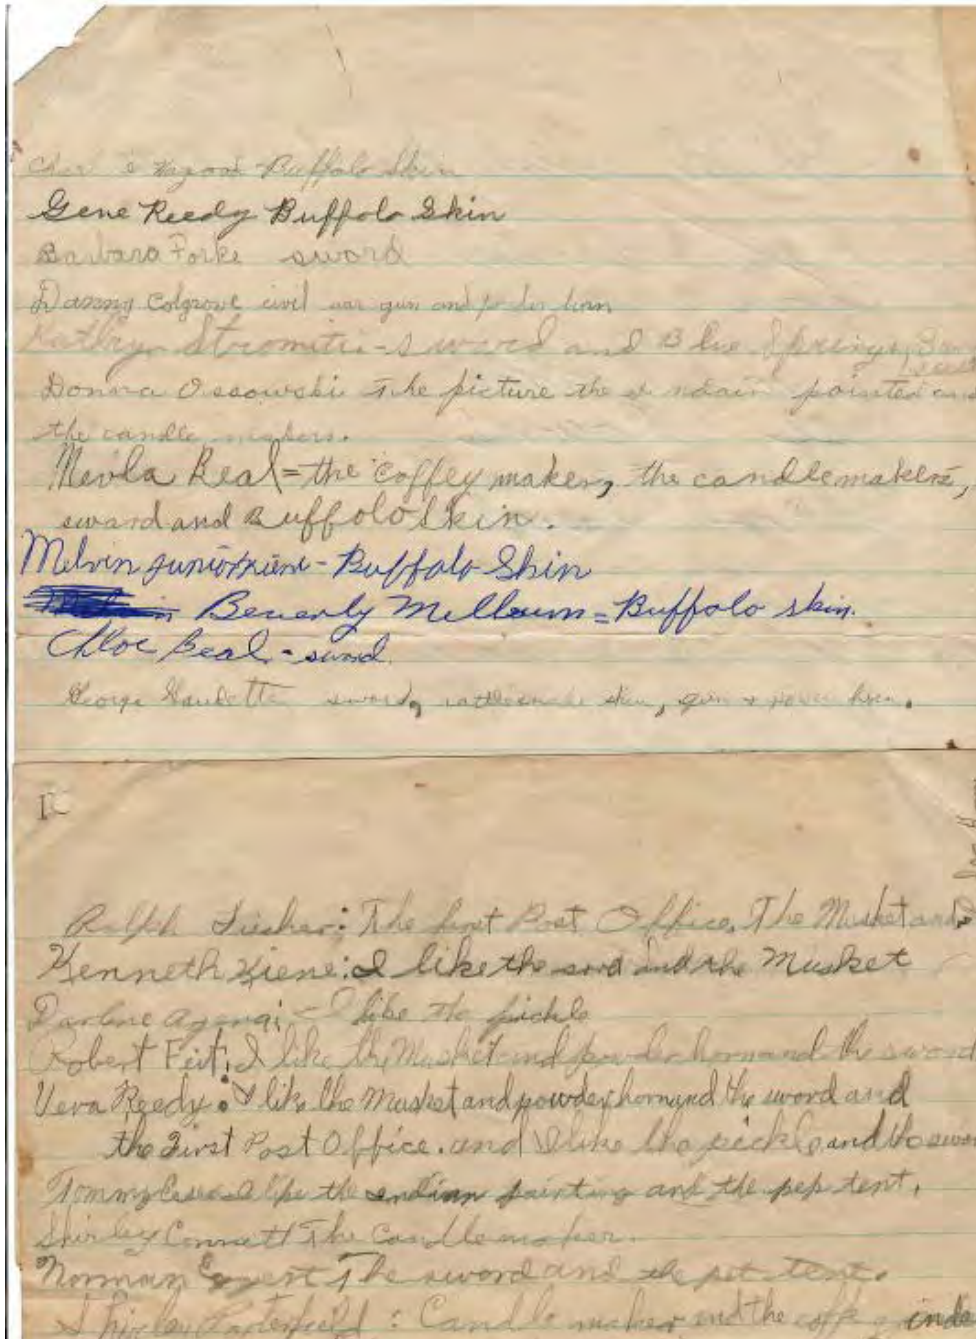 Buffalo Skin
Gene Reedy Buffalo Skin
Barbara Forke sword
Danny Colgrove civil war gun and horn
Kathryn - sword and Blue Springs
Donna Ossowski The picture the painted and
the candle makers.
Nevla Beal = the coffey maker, the candlemakers,
sword and Buffolo Skin.
Melvin junior - Buffalo Skin
Beverly = Buffalo skin.
Chloe Beal - sword.
George sword, rattlesnake skin, gun + horn.
Ralph : The first Post Office. The Musket and
Kenneth Kiene: I like the and the Musket
Darlene - I like the pickle
Robert : I like the Musket and powder horn and the sword
Vera Reedy: I like the Musket and powder horn and the sword and
the First Post Office. and I like the pickle and the
Tommy the indian painting and the pep tent.
Shirley The Candle maker.
Norman The sword and the tent.
Shirley : Candle maker and the